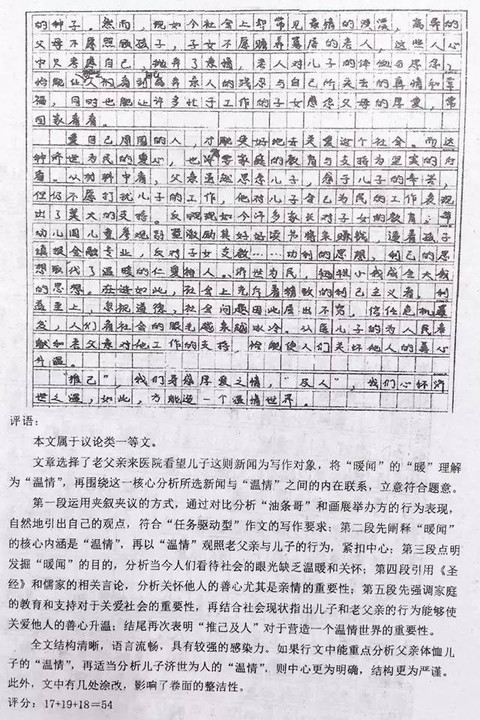 的种子。然而，现如今社会上却常见亲情的淡漠，离异的
父母不愿照顾孩子，子女不愿赡养的老人，这些人心
中只考虑自己，抛弃了亲情，老人对儿子的体恤与思念，
恰能让人们看到亲人的残忍与自己所失去的真情和幸
福，同时也能让许多忙于工作的子女父母的厚爱，常
回家看看。
爱自己周围的人，才能更好地去关爱这个社会。而这
种济世为民的善心，也需要家庭的教育与支持为坚实的
。从材料中看，父亲虽然思念儿子，儿子的辛苦，
但仍不愿打扰儿子的工作，他对儿子舍己为民的工作表现
出了莫大的支持。反观现如今许多家长对子女的教育：
幼儿园儿童激励其好好读书将来赚钱，逼着孩子
填报金融专业，反对子女支教……功利的思想、利己的思
想取代了温暖的仁爱待人、济世为民、小我成全大我
的思想。在此，社会上充斥着精致的利己主义者，利
益至上，忽视道德，社会问题因此层出不穷，信任危机
发，人们看社会的眼光越来越冰冷。从医儿子的为人民奉
献和老父亲对他工作的支持，恰能使人们关怀他人的善心
升温。
“推己”，我们寻厚爱之情，“及人”，我们心怀济
世之温，如此，方能造一个温情世界。
评语：
本文属于议论类一等文。
文章选择了老父亲来医院看望儿子这则新闻为写作对象，将“暖闻”的“暖”理解
为“温情”，再围绕这一核心分析所选新闻与“温情”之间的内在联系，立意符合题意。
第一段运用夹叙夹议的方式，通过对比分析“油条哥”和画展举办方的行为表现，
自然地引出自己的观点，符合“任务驱动型”作文的写作要求；第二段先阐释“暖闻”
的核心内涵是“温情”，再以“温情”观照老父亲与儿子的行为，紧扣中心；第三段点明
发掘“暖闻”的目的，分析当今人们看待社会的眼光缺乏温暖和关怀；第四段引用《圣
经》和儒家的相关言论，分析关怀他人的善心尤其是亲情的重要性；第五段先强调家庭
的教育和支持对于关爱社会的重要性，再结合社会现状指出儿子和老父亲的行为能够使
关爱他人的善心升温；结尾再次表明“推己及人”对于营造一个温情世界的重要性。
全文结构清晰，语言流畅，具有较强的感染力。如果行文中能重点分析父亲体恤儿
子的“温情”，再适当分析儿子济世为人的“温情”，则中心更为明确，结构更为严谨。
此外，文中有几处涂改，影响了卷面的整洁性。
评分：17+19+18=54